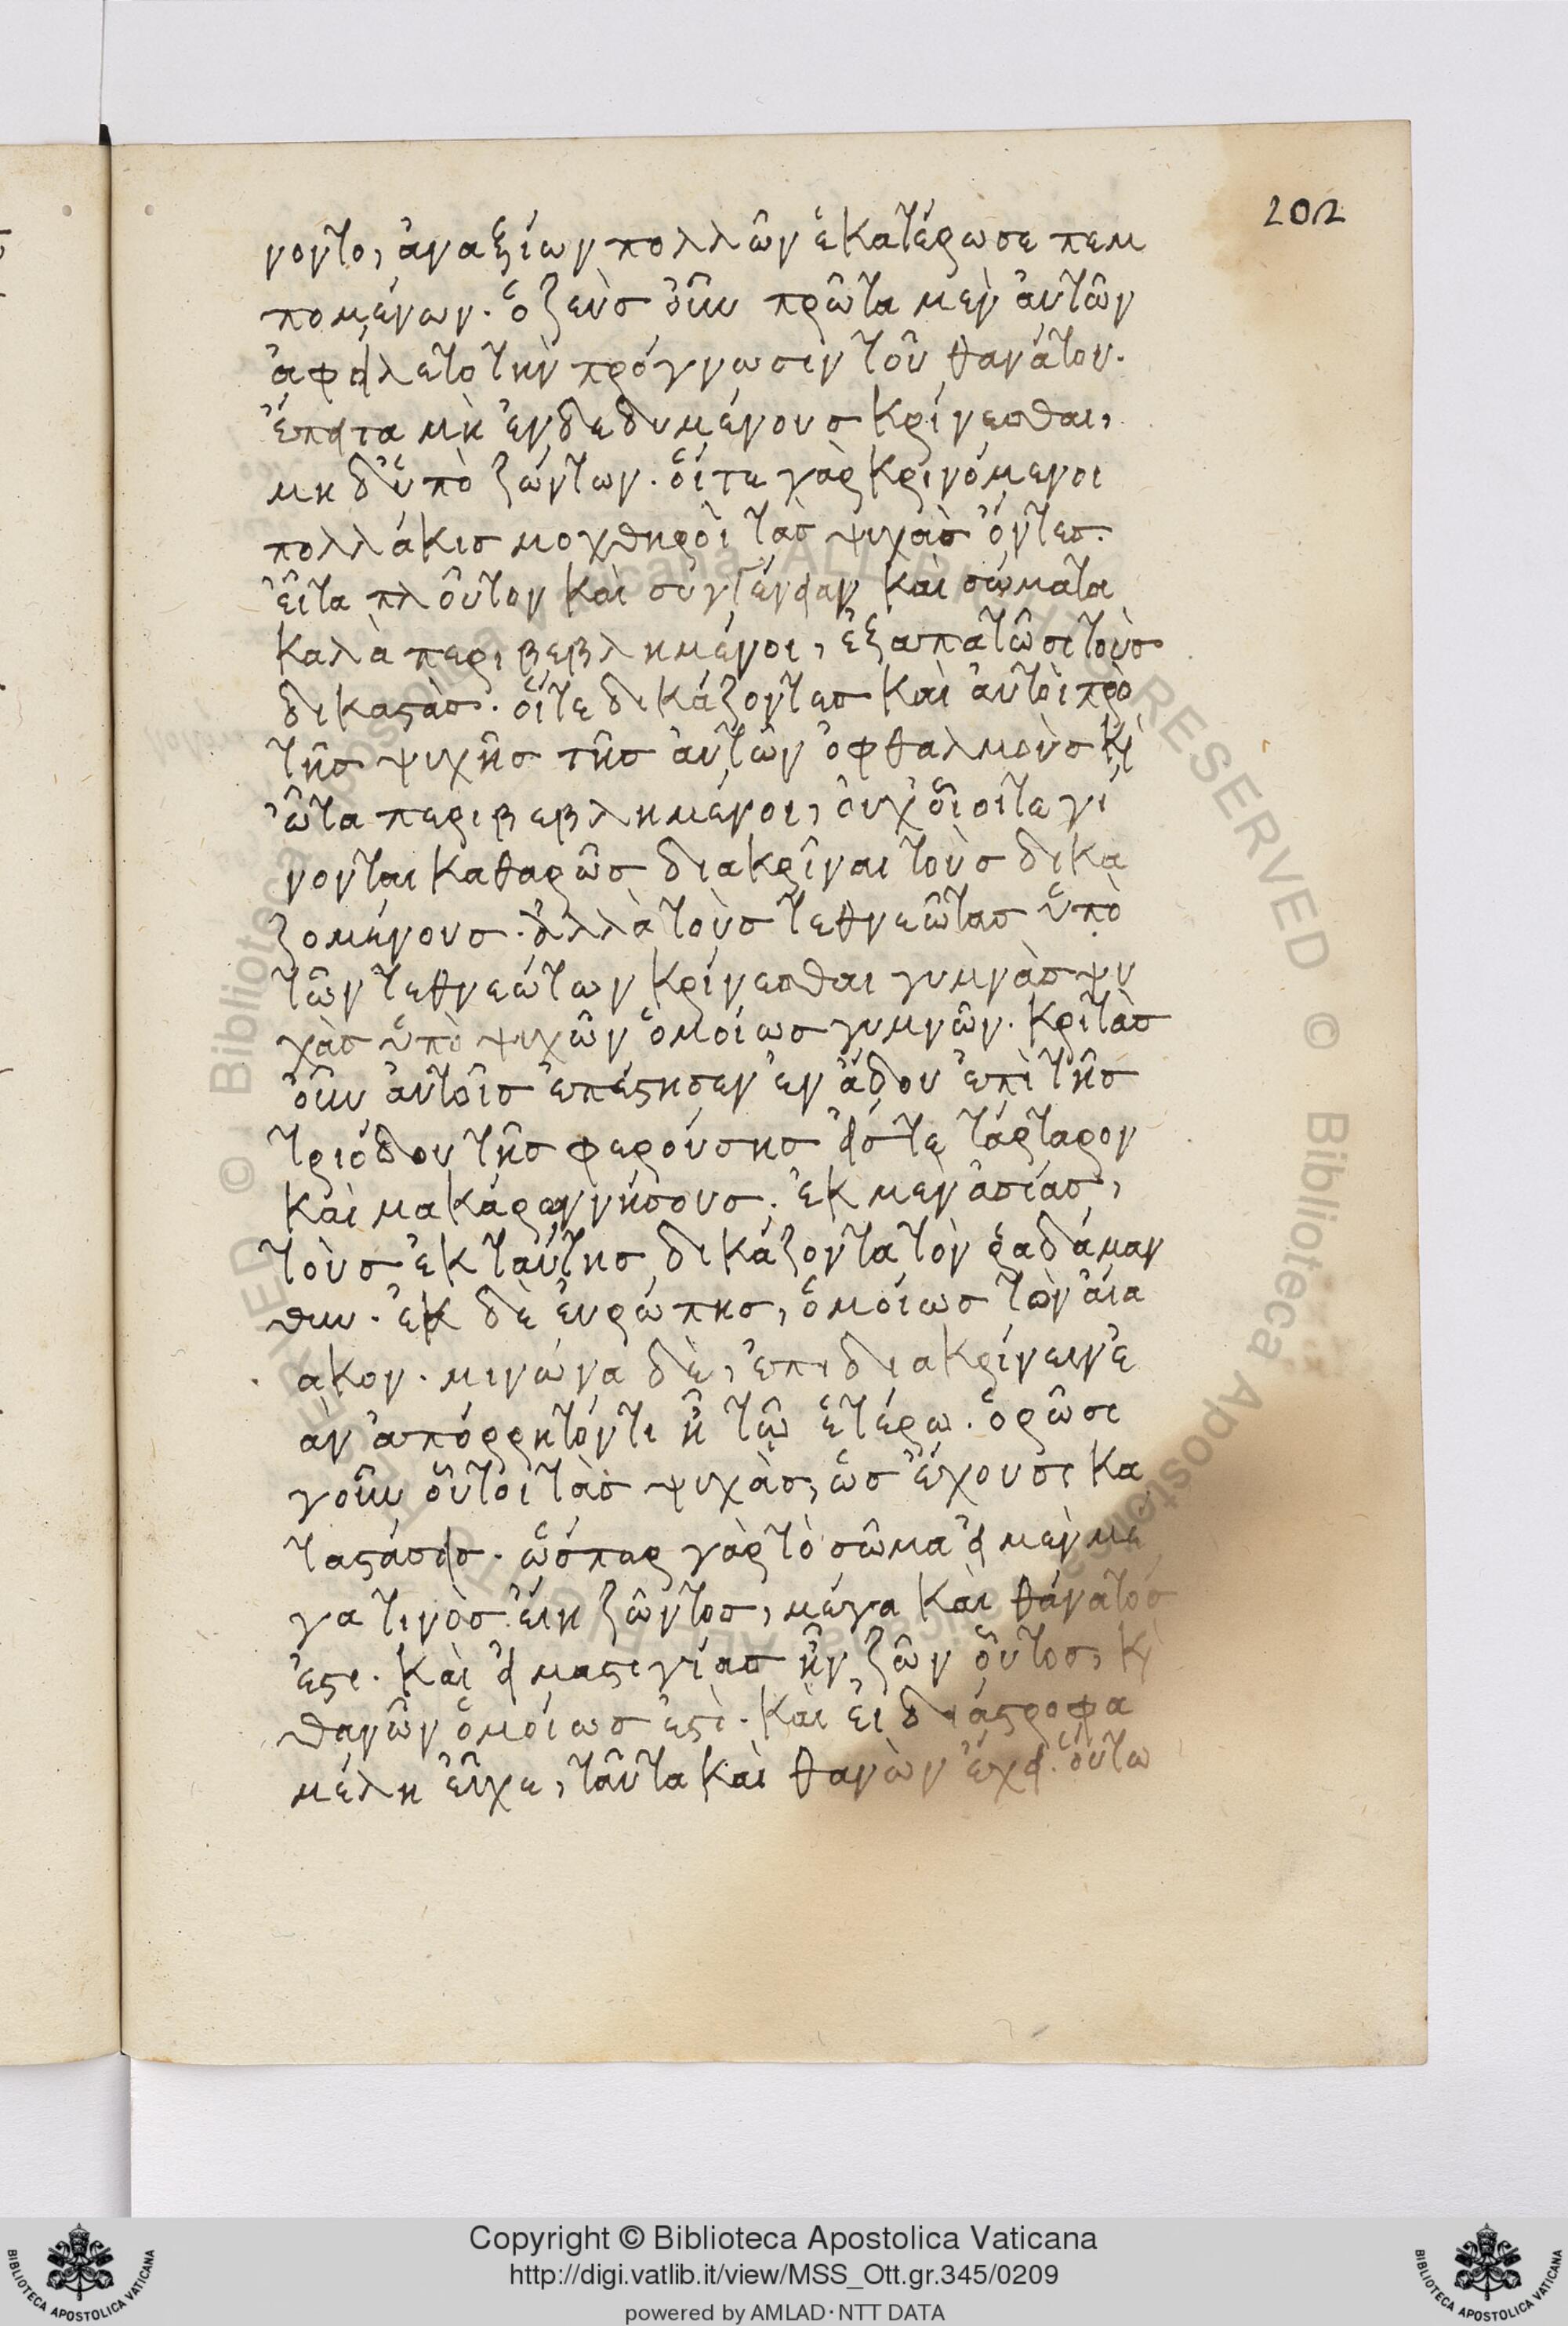 202
νοντο, ἀναξίων πολλῶν ἑκατέρωσε πεμ
πομένων. ὁ ζεὺσ οὖν πρῶτα μὲν ἀυτῶν
ἀφείλετο τὴν πρόγνωσιν τοῦ θανάτου.
ἔπειτα μὴ ἐνδεδυμένουσ κρίνεσθαι,
μηδ' ὑπὸ ζώντων. ὅιτε γὰρ κρινόμενοι
πολλάκισ μοχθηρὸι τὰσ ψυχὰσ ὄντεσ.
ἐῖτα πλοῦτον καὶ συγγένειαν καὶ σώματα
καλὰ περιβεβλημένοι, ἐξαπατῶσι τοὺσ
δικαστὰσ. οἵτε δικάζοντεσ καὶ ἀυτοὶ πρὸ
τῆσ ψυχῆσ τῆσ ἀυτῶν ὀφθαλμοὺσ κ̀
ὦτα περιβεβλημένοι, ὀυχ' ὅῖοιτε γί
νονται καθαρῶσ διακρῖναι τοὺσ δικα
ζομένουσ. ἀλλὰ τοὺσ τεθνεῶτασ ὑπὸ
τῶν τεθνεώτων κρίνεσθαι γυμνὰσ ψυ
χὰσ ὑπὸ ψυχῶν ὁμοίωσ γυμνῶν. κριτὰσ
οὖν ἀυτοῖσ ἐπέστησεν ἐν ἅδου ἐπὶ τῆσ
τριόδου τῆσ φερούσησ εἴστε τάρταρον
καὶ μακάρων νήσουσ. ἐκ μὲν ἀσίασ,
τοὺσ ἐκ ταύτησ δικάζοντα τὸν ῥαδάμαν
θυν. ἐκ δὲ ἐυρώπησ, ὁμοίωσ τὸν ἀία
ακον. μινώνα δὲ, ἐπιδιακρίνειν ἐ
αν ἀπόρρητόντι ἦ τῷ ἑτέρω. ὁρῶσι
γοῦν οὗτοι τὰσ ψυχὰσ, ὡσ ἔχουσι κα
ταστάσεισ. ὥσπερ γὰρ τὸ σῶμα εἰ μὲν μέ
γα τινὸσ ἐίη ζῶντοσ, μέγα καὶ θάνατόσ
ἐστι. καὶ εἰ μαστιγίασ ἦν ζῶν οὗτοσ, κ̀
θανῶν ὁμοίωσ ἐστὶ. καὶ ἐι διάστροφα
μέλη ἐῖχε, ταῦτα καὶ θανὼν ἔχει. ὅυτω
Copyright © Biblioteca Apostolica Vaticana
http://digi.vatlib.it/view/MSS_Ott.gr.345/0209
powered by AMLAD·NTT DATA